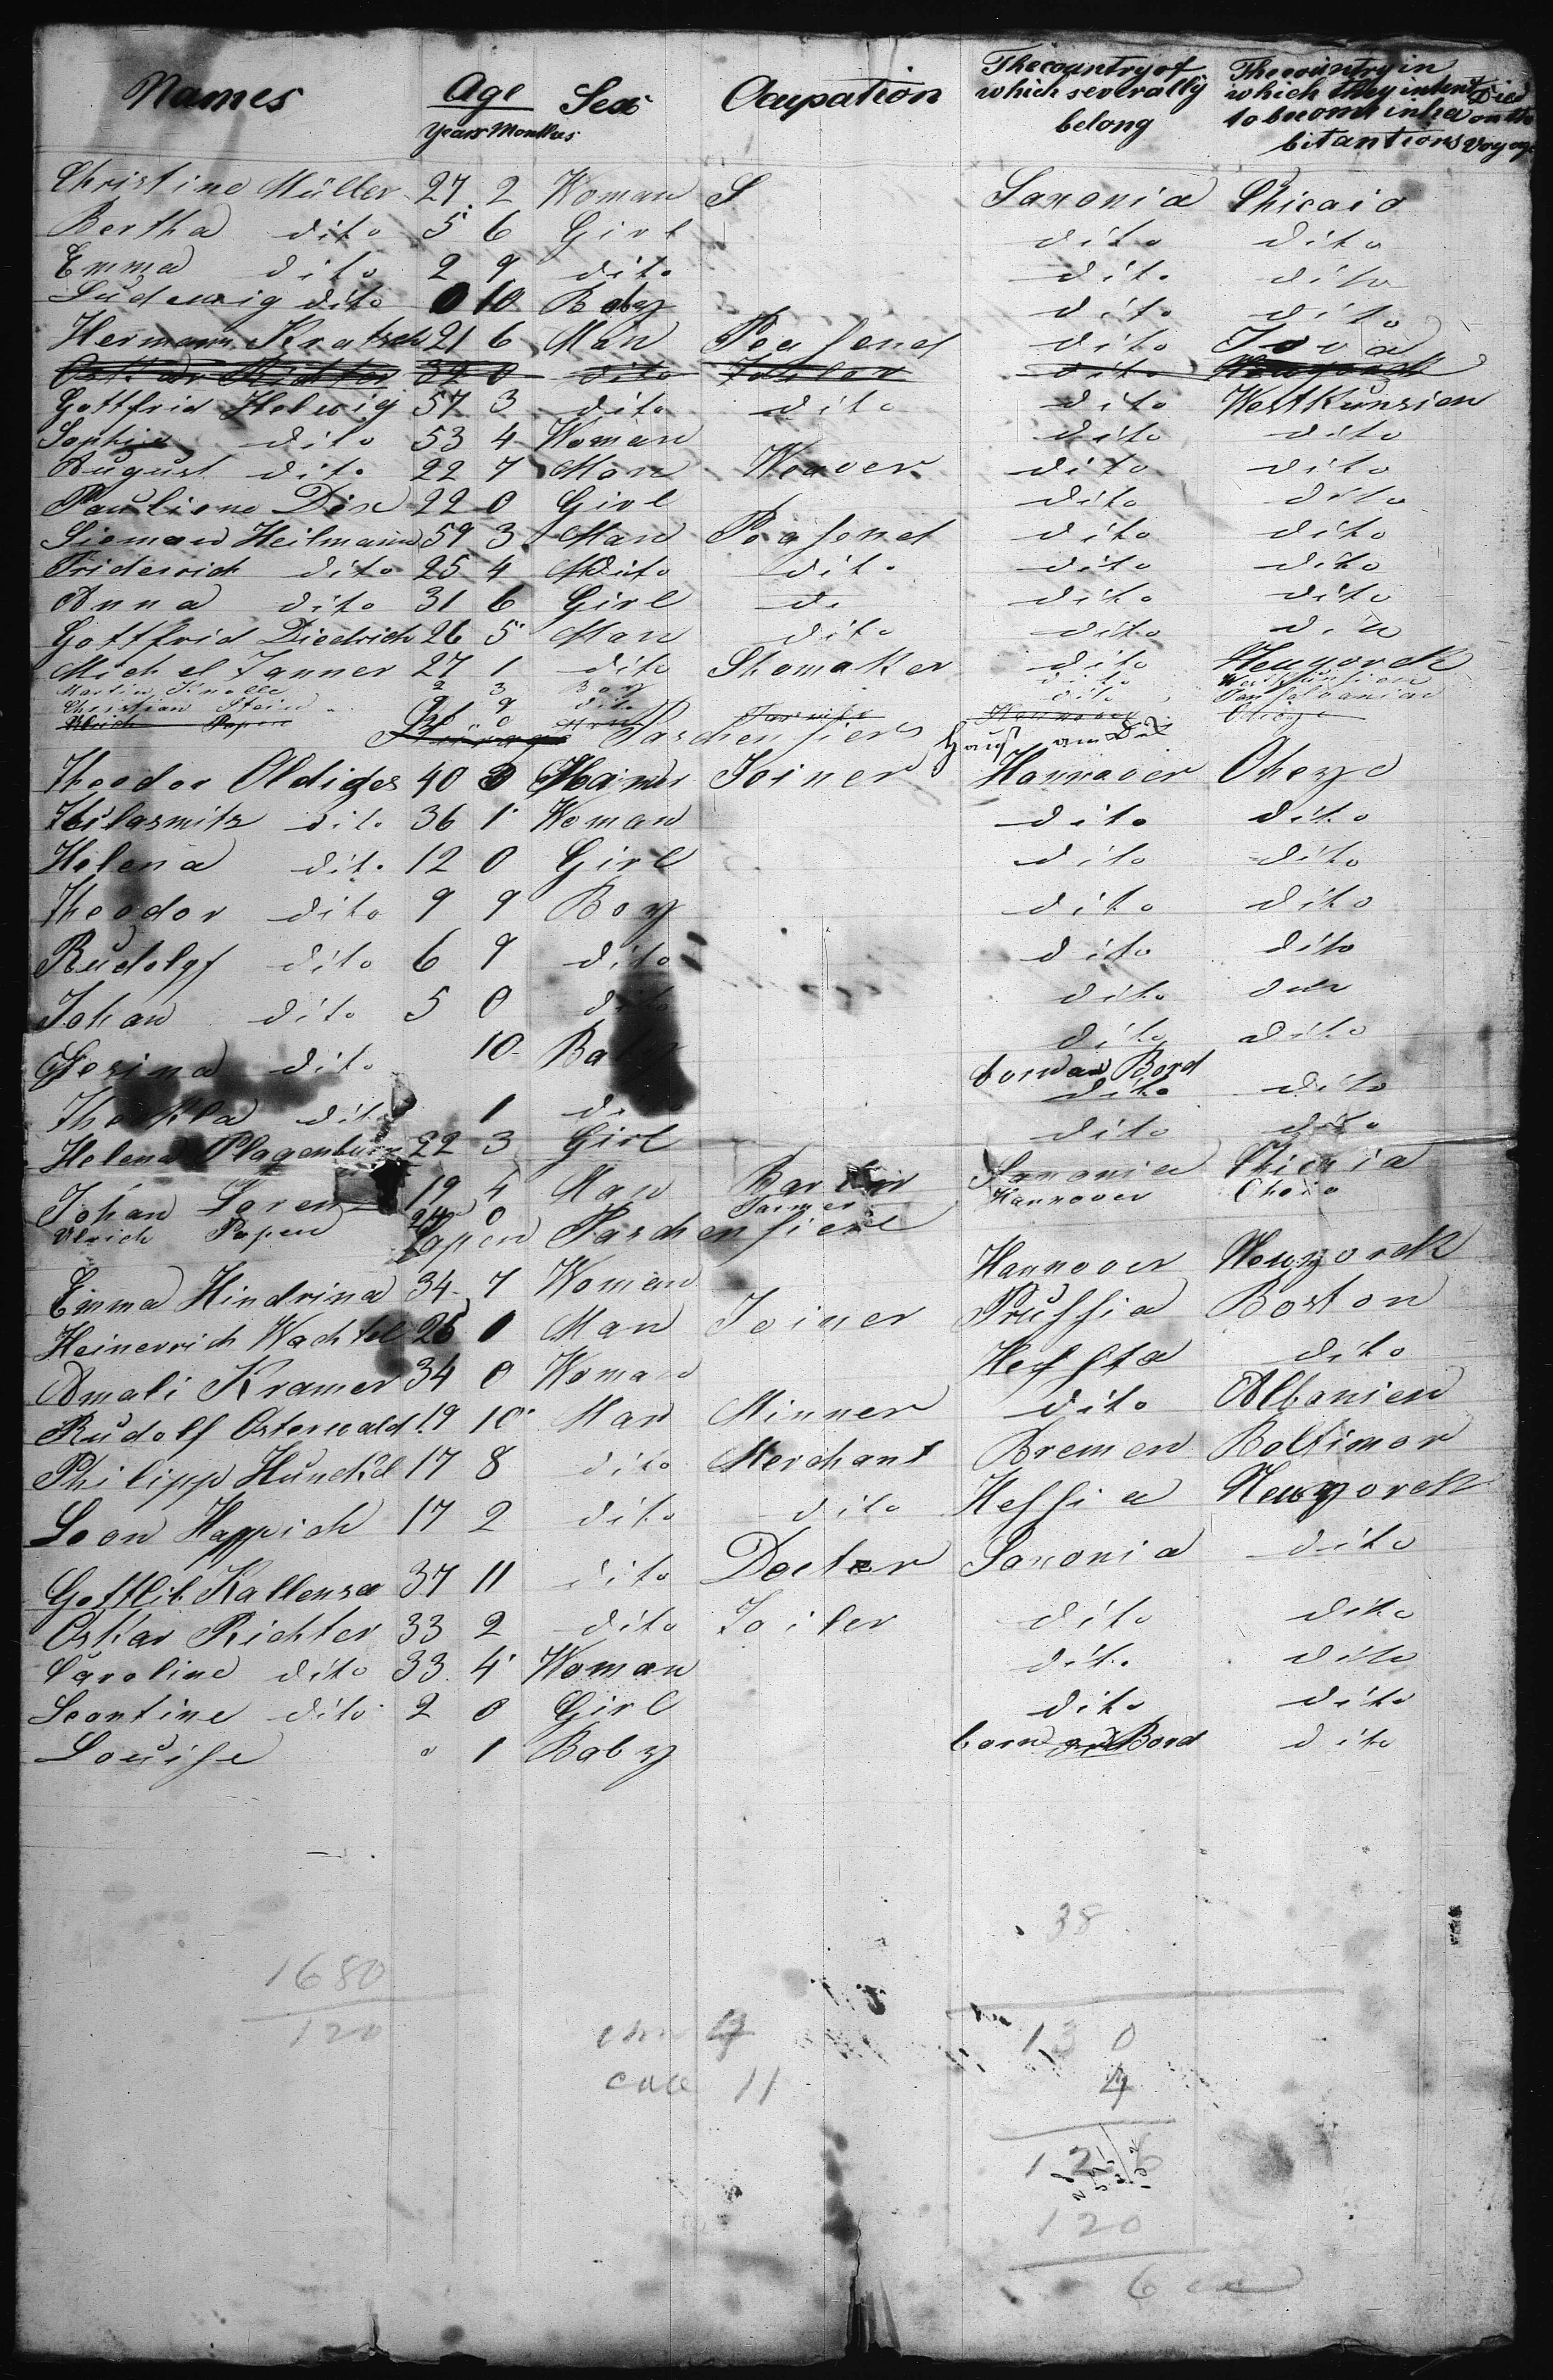 Names Age Sex Ocupation The country of which severally belong The country in which they intent to become inha bitantions Died on the Voyage
Years Monthes
Christine Müller 27 2 Woman S Saxonia Chicaio
Bertha dito 5 6 Girl dito dito
Emma dito 2 9 dito dito dito
Ludewig dito 0 10 Baby dito dito
Hermann Kratsch 21 6 Man Peasend dito Iova
Oskar Richter 32 0 dito dito Newyorck
Gottfrid Helwig 57 3 dito dito dito West Kunsien
Sophia dito 53 4 Woman dito dito
August dito 22 7 Man Weaver dito dito
Pauliene Dix 22 0 Girl dito dito
Siemon Heilmann 59 3 Man Peasend dito dito
Friderich dito 25 4 dito dito dito dito
Anna dito 31 6 Girl di dito dito
Gottfrid Diedrich 26 5 Man dito dito dito
Michel Janner 27 1 dito Shomaker dito Newyorck
Martin Knolle 2 3 Boy dito
Christian Stein 21 9 dito dito Pansilvanian
Ulrich Papen 21 0 Man Farmer Hannover Ohioye
Taschen
Theodor Oldiges 40 3 Man Joiner Hannover Oheyo
dito 36 1 Woman dito dito
Helena dito 12 0 Girl dito dito
Theodor dito 9 9 Boy dito dito
Rudolgf dito 6 9 dito dito dito
Johan dito 5 0 dito dito dito
Gesina dito 10 Baby dito dito
born an Bord
Thekla dito 1 di dito dito
Helena Plagenburg 22 3 Girl dito dito
Johan Loren 19 4 Man Barbir Saxonia Chicaia
Ulrich Papen 24 0 Farmer Hannover Ohoio
Papen Taschen
Emma Hindrina 34 7 Woman Hannover Newyorck
Heinerrich Wachtel 26 1 Man Joiner Prussia Boston
Amali Kramer 34 0 Woman Hessia dito
Rudolf Osterwald 19 10 Man Minner dito Albanien
Philipp Hunckel 17 8 dito Merchant Bremen Boltimor
Leon Happich 17 2 dito dito Hessia Newyorck
Gottlib Kallensee 37 11 dito Docter Saxonia dito
Oskar Richter 33 2 dito Toiler dito dito
Caroline dito 33 4 Woman dito dito
Leontine dito 2 0 Girl dito dito
Louise 0 1 Baby born an Bord dito
38
1680
120
130
4
11
126
120
6